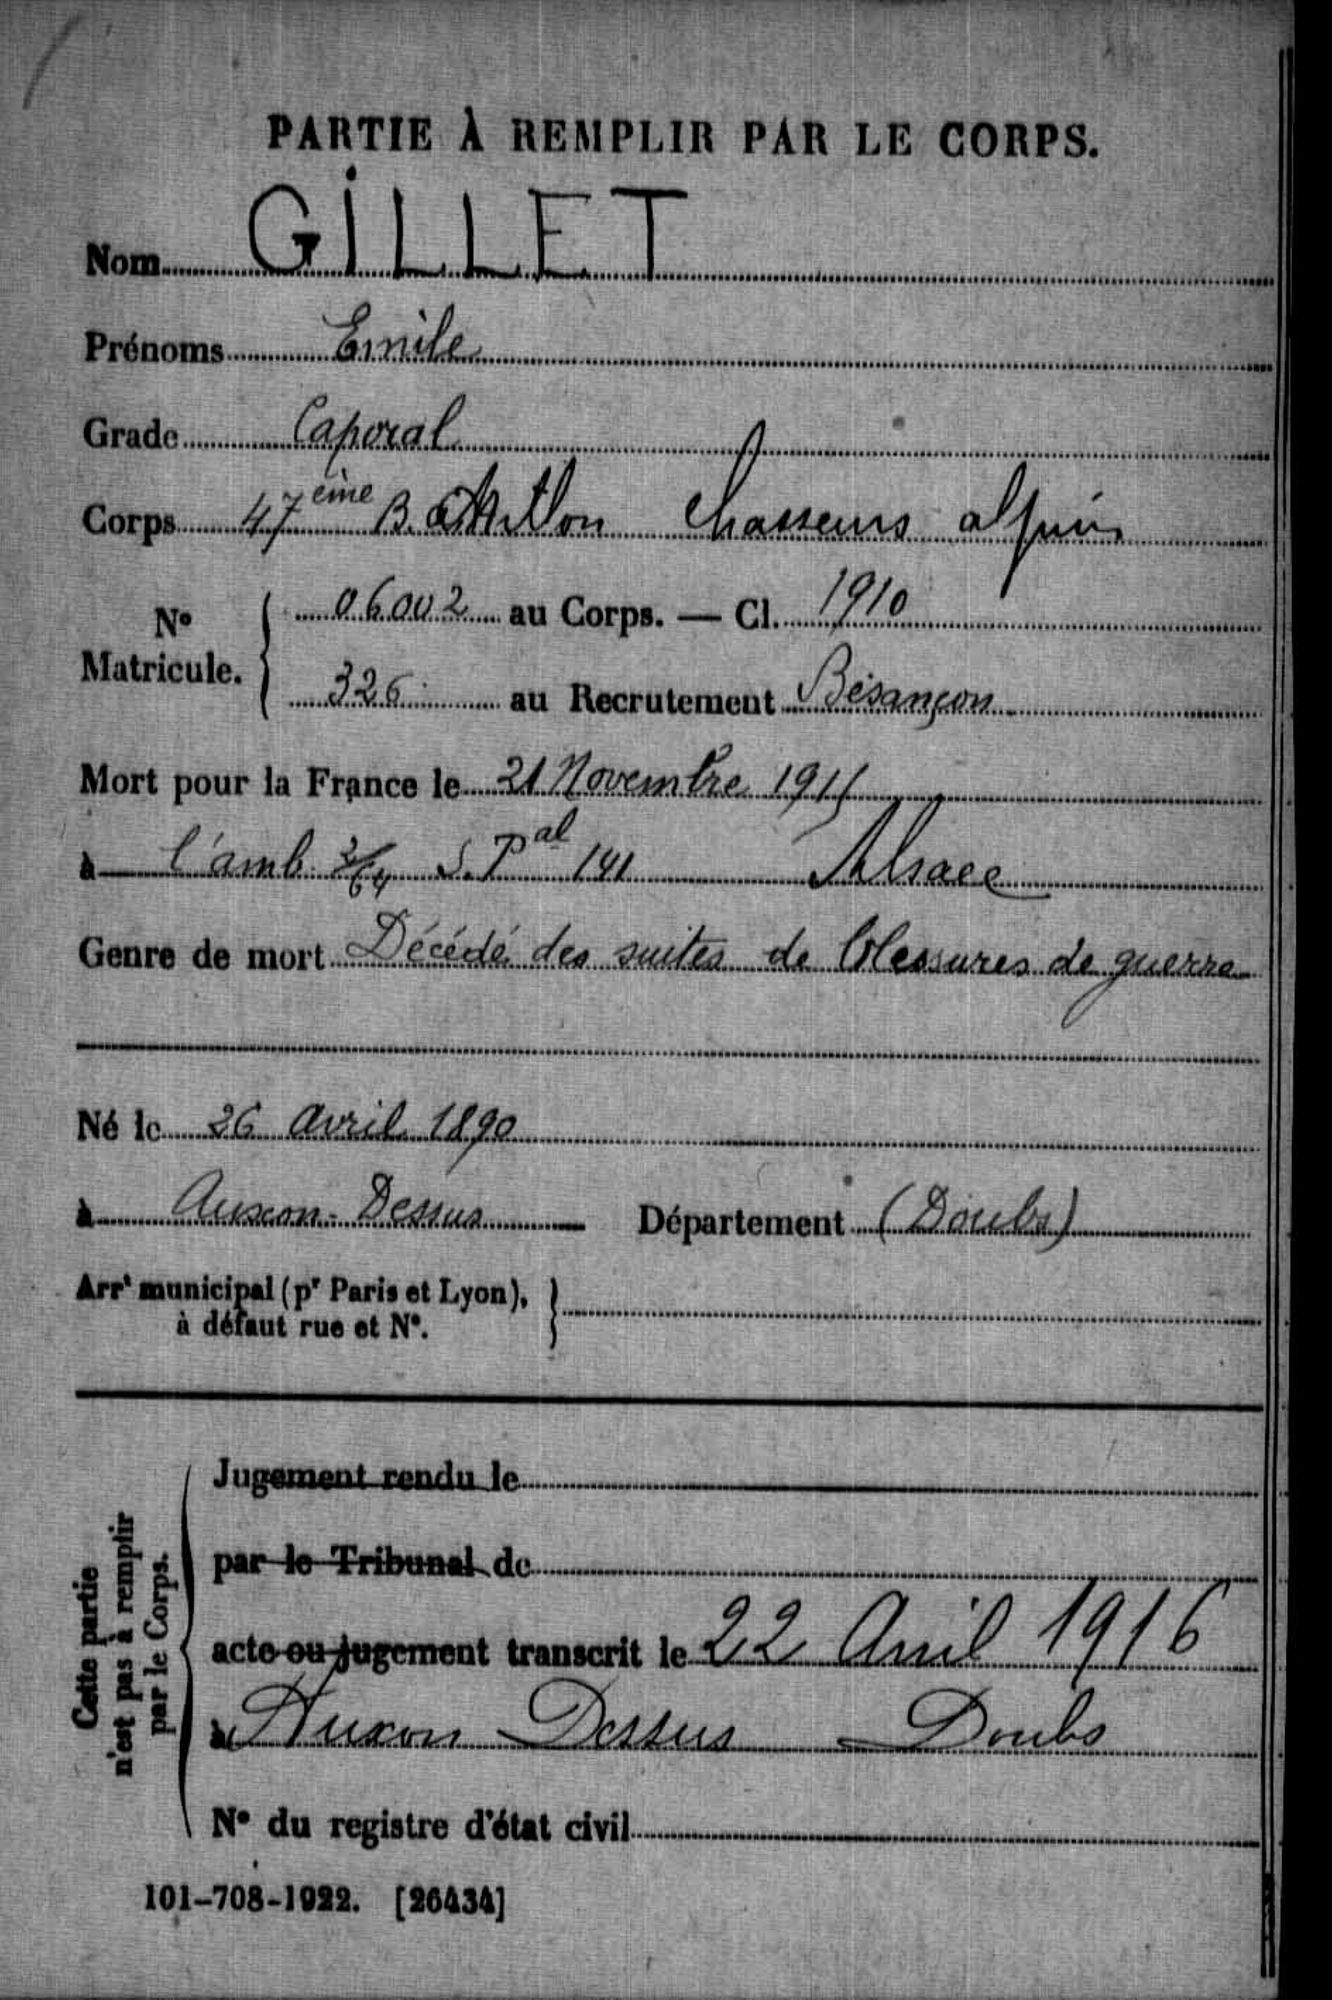 PARTIE À REMPLIR PAR LE CORPS.
Nom GILLET
Prénoms Emile
Grade Caporal
Corps 47ème Bataillon Chasseurs alpins
N° Matricule. 06002 au Corps. — Cl. 1910
326 au Recrutement Besançon
Mort pour la France le 21 Novembre 1915
à l'amb. 2/64 S. Pal 141 Alsace
Genre de mort Décédé des suites de blessures de guerre
Né le 26 Avril 1890
à Auxon-Dessus Département (Doubs)
Arrt municipal (pr Paris et Lyon),
à défaut rue et N°.
Cette partie
n'est pas à remplir
par le Corps.
Jugement rendu le
par le Tribunal de
acte ou jugement transcrit le 22 Avril 1916
à Auxon Dessus Doubs
N° du registre d'état civil
101-708-1922. [26434]